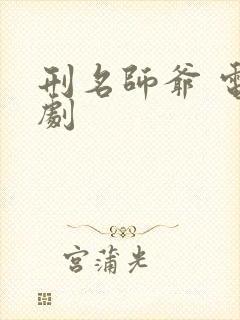 刑名師爺 電
劇
宮蒲光